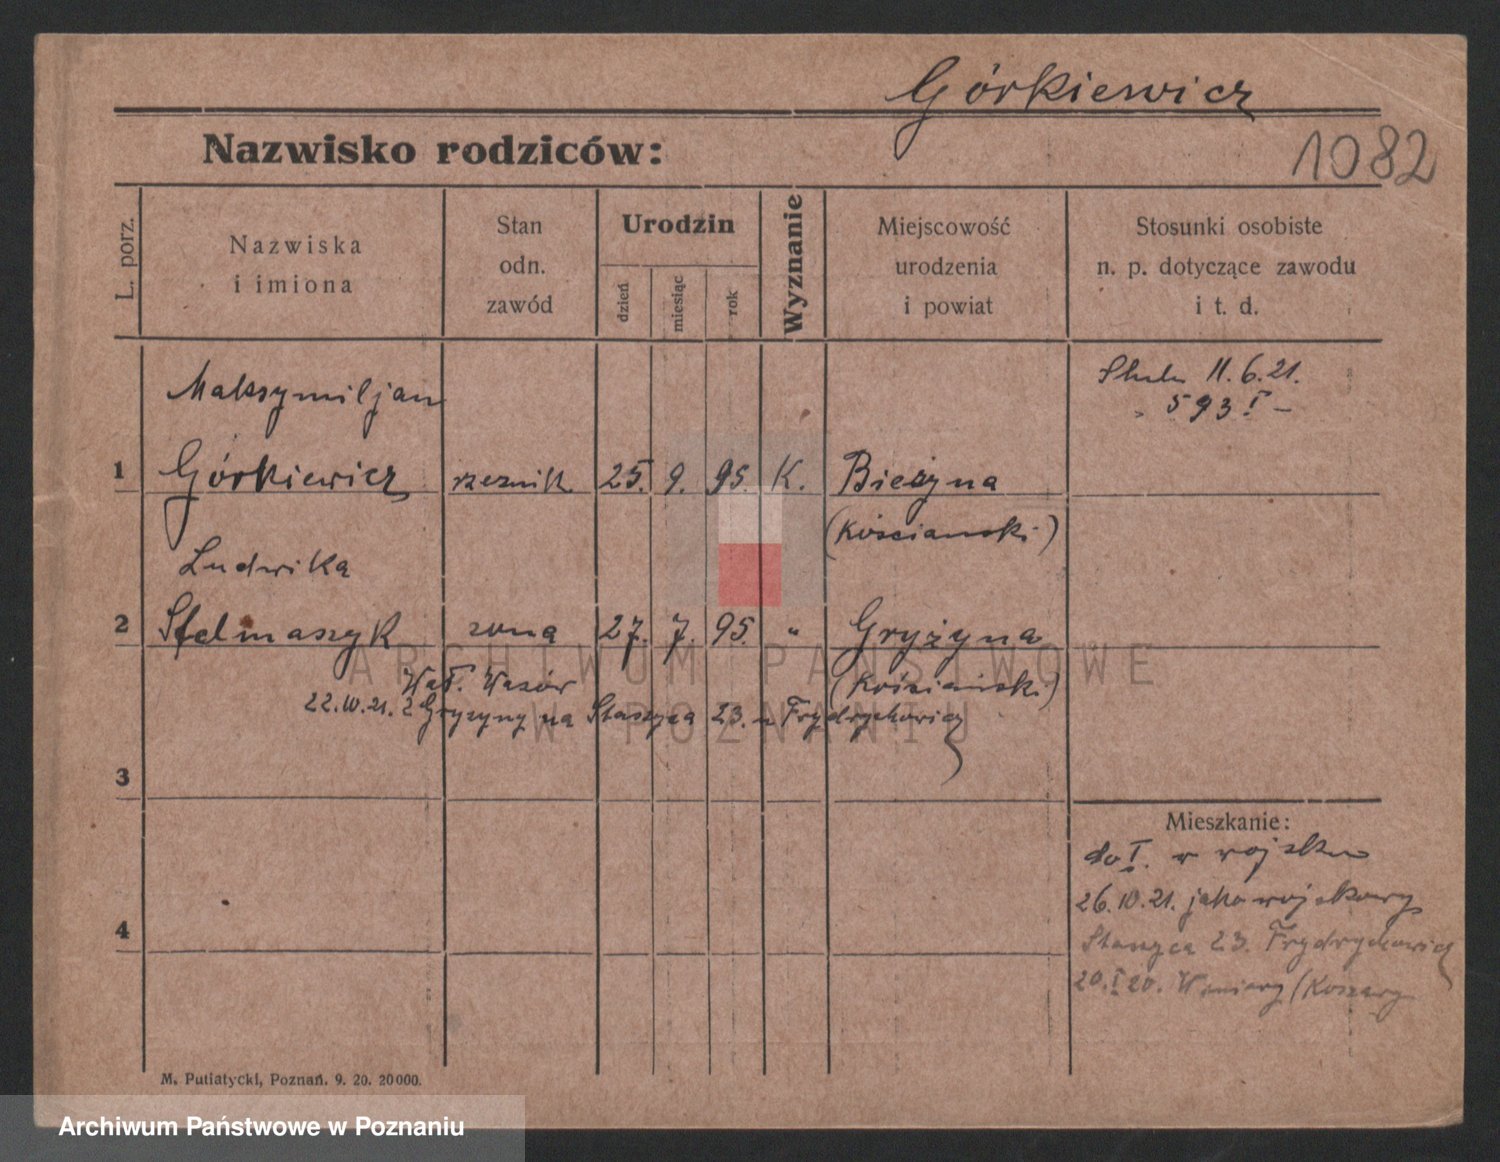 Górkiewicz
1082
Nazwisko rodziców:
L. porz.
Nazwiska
i imiona
Stan
odn.
zawód
Urodzin
dzień
miesiąc
rok
Wyznanie
Miejscowość
urodzenia
i powiat
Stosunki osobiste
n. p. dotyczące zawodu
i t. d.
11.6.21.
593 I –
Maksymiljan
1 Górkiewicz rzeźnik 25. 9. 95. K. Bieżyna
(Kościański)
Ludwika
2 Stelmaszyk żona 27. 7. 95. " Gryżyna
(Kościański)
Wał. Wazów
22.10.21. z Gryżyny na Staszyca 23. u Frydrychowicz
3
4
Mieszkanie:
do I. w wojsku
26.10.21. jako wojskowy
Staszyca 23. Frydrychowicz
20. I 20. Winiary (Koszary
M. Putiatycki, Poznań. 9. 20. 20000.
ARCHIWUM PAŃSTWOWE
W POZNANIU
Archiwum Państwowe w Poznaniu